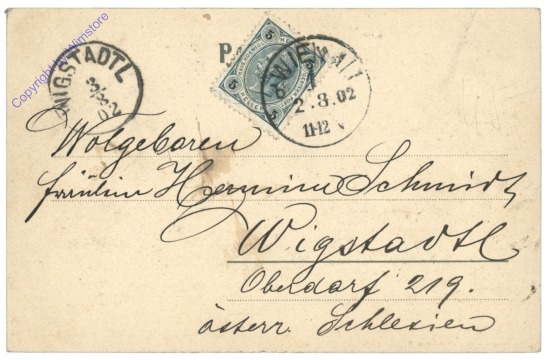 Copyright by Wimstore
WIGSTADTL
3/3
02
5
5
5
5
WIEN 1/1
2.3.02
11-12 V
Wolgeboren
Fräulein Hermine Schmidt
Wigstadtl
Oberdorf 219.
österr. Schlesien